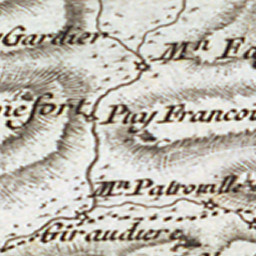 Gardier
Mⁿ Fa
nefort
Puy Francoi
Mⁿ Patrouille
Giraudiere